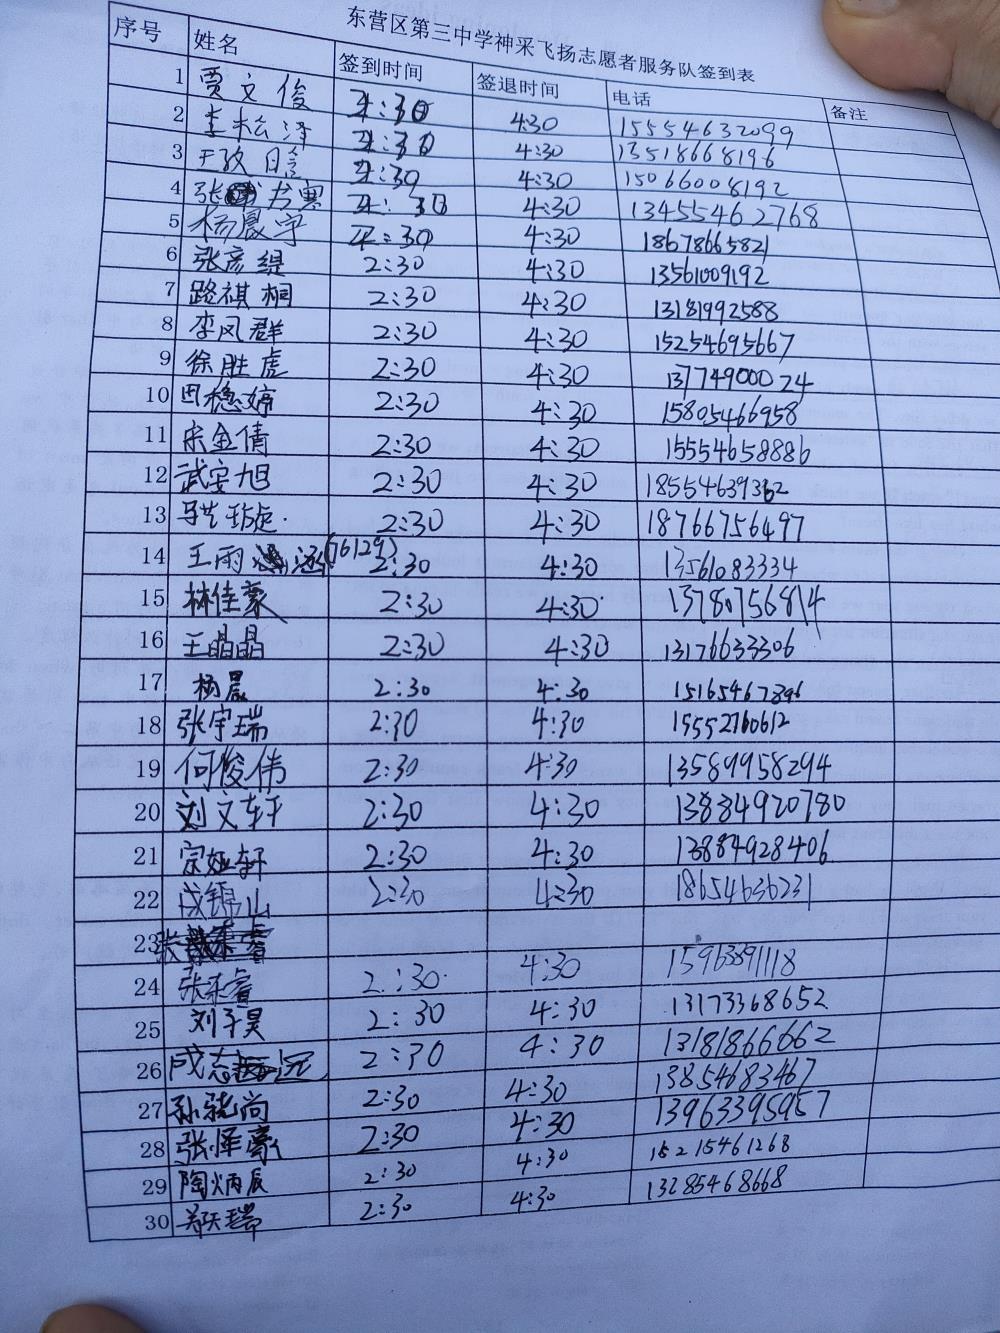 东营区第三中学神采飞扬志愿者服务队签到表
序号 姓名 签到时间 签退时间 电话 备注
1 贾文俊 2:30 4:30 15554632099
2 李松泽 2:30 4:30 13518668196
3 王孜 2:30 4:30 15066008192
4 张书寒 2:30 4:30 13455462768
5 杨晨宇 2:30 4:30 18678665821
6 张彦缇 2:30 4:30 13561009192
7 路祺桐 2:30 4:30 13181992588
8 李风群 2:30 4:30 15254695667
9 徐胜虎 2:30 4:30 13774900024
10 田稳婷 2:30 4:30 15805466958
11 宋金倩 2:30 4:30 15554658886
12 武安旭 2:30 4:30 18554639362
13 2:30 4:30 18766756497
14 王雨涵(76129) 2:30 4:30 13561083334
15 林佳蒙 2:30 4:30 13780756814
16 王晶晶 2:30 4:30 13176633306
17 杨晨 2:30 4:30 15165467896
18 张宇瑞 2:30 4:30 15552760612
19 何俊伟 2:30 4:30 13589958294
20 刘又轩 2:30 4:30 13884920780
21 宗娅轩 2:30 4:30 13884928406
22 成锦山 2:30 4:30 18654636231
23 张
24 张东睿 2:30 4:30 15963891118
25 刘子昊 2:30 4:30 13173368652
26 成志远 2:30 4:30 13181866662
27 孙尚 2:30 4:30 13854683467
28 张泽豪 2:30 4:30 13963395957
29 陶炳辰 2:30 4:30 15215461268
30 郑天瑞 2:30 4:30 13285468668